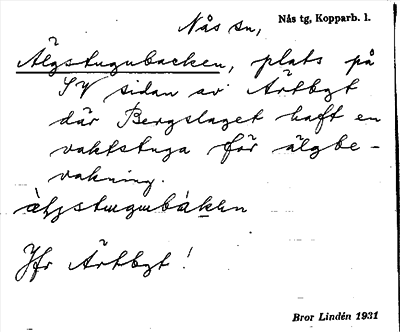 Nås sn,
Nås tg, Kopparb. l.
Älgstugubacken, plats på
SV sidan av Ärtbgt
där Bergslaget haft en
vaktstuga för älgbe-
vakning.
Jfr Ärtbgt!
Bror Lindén 1931